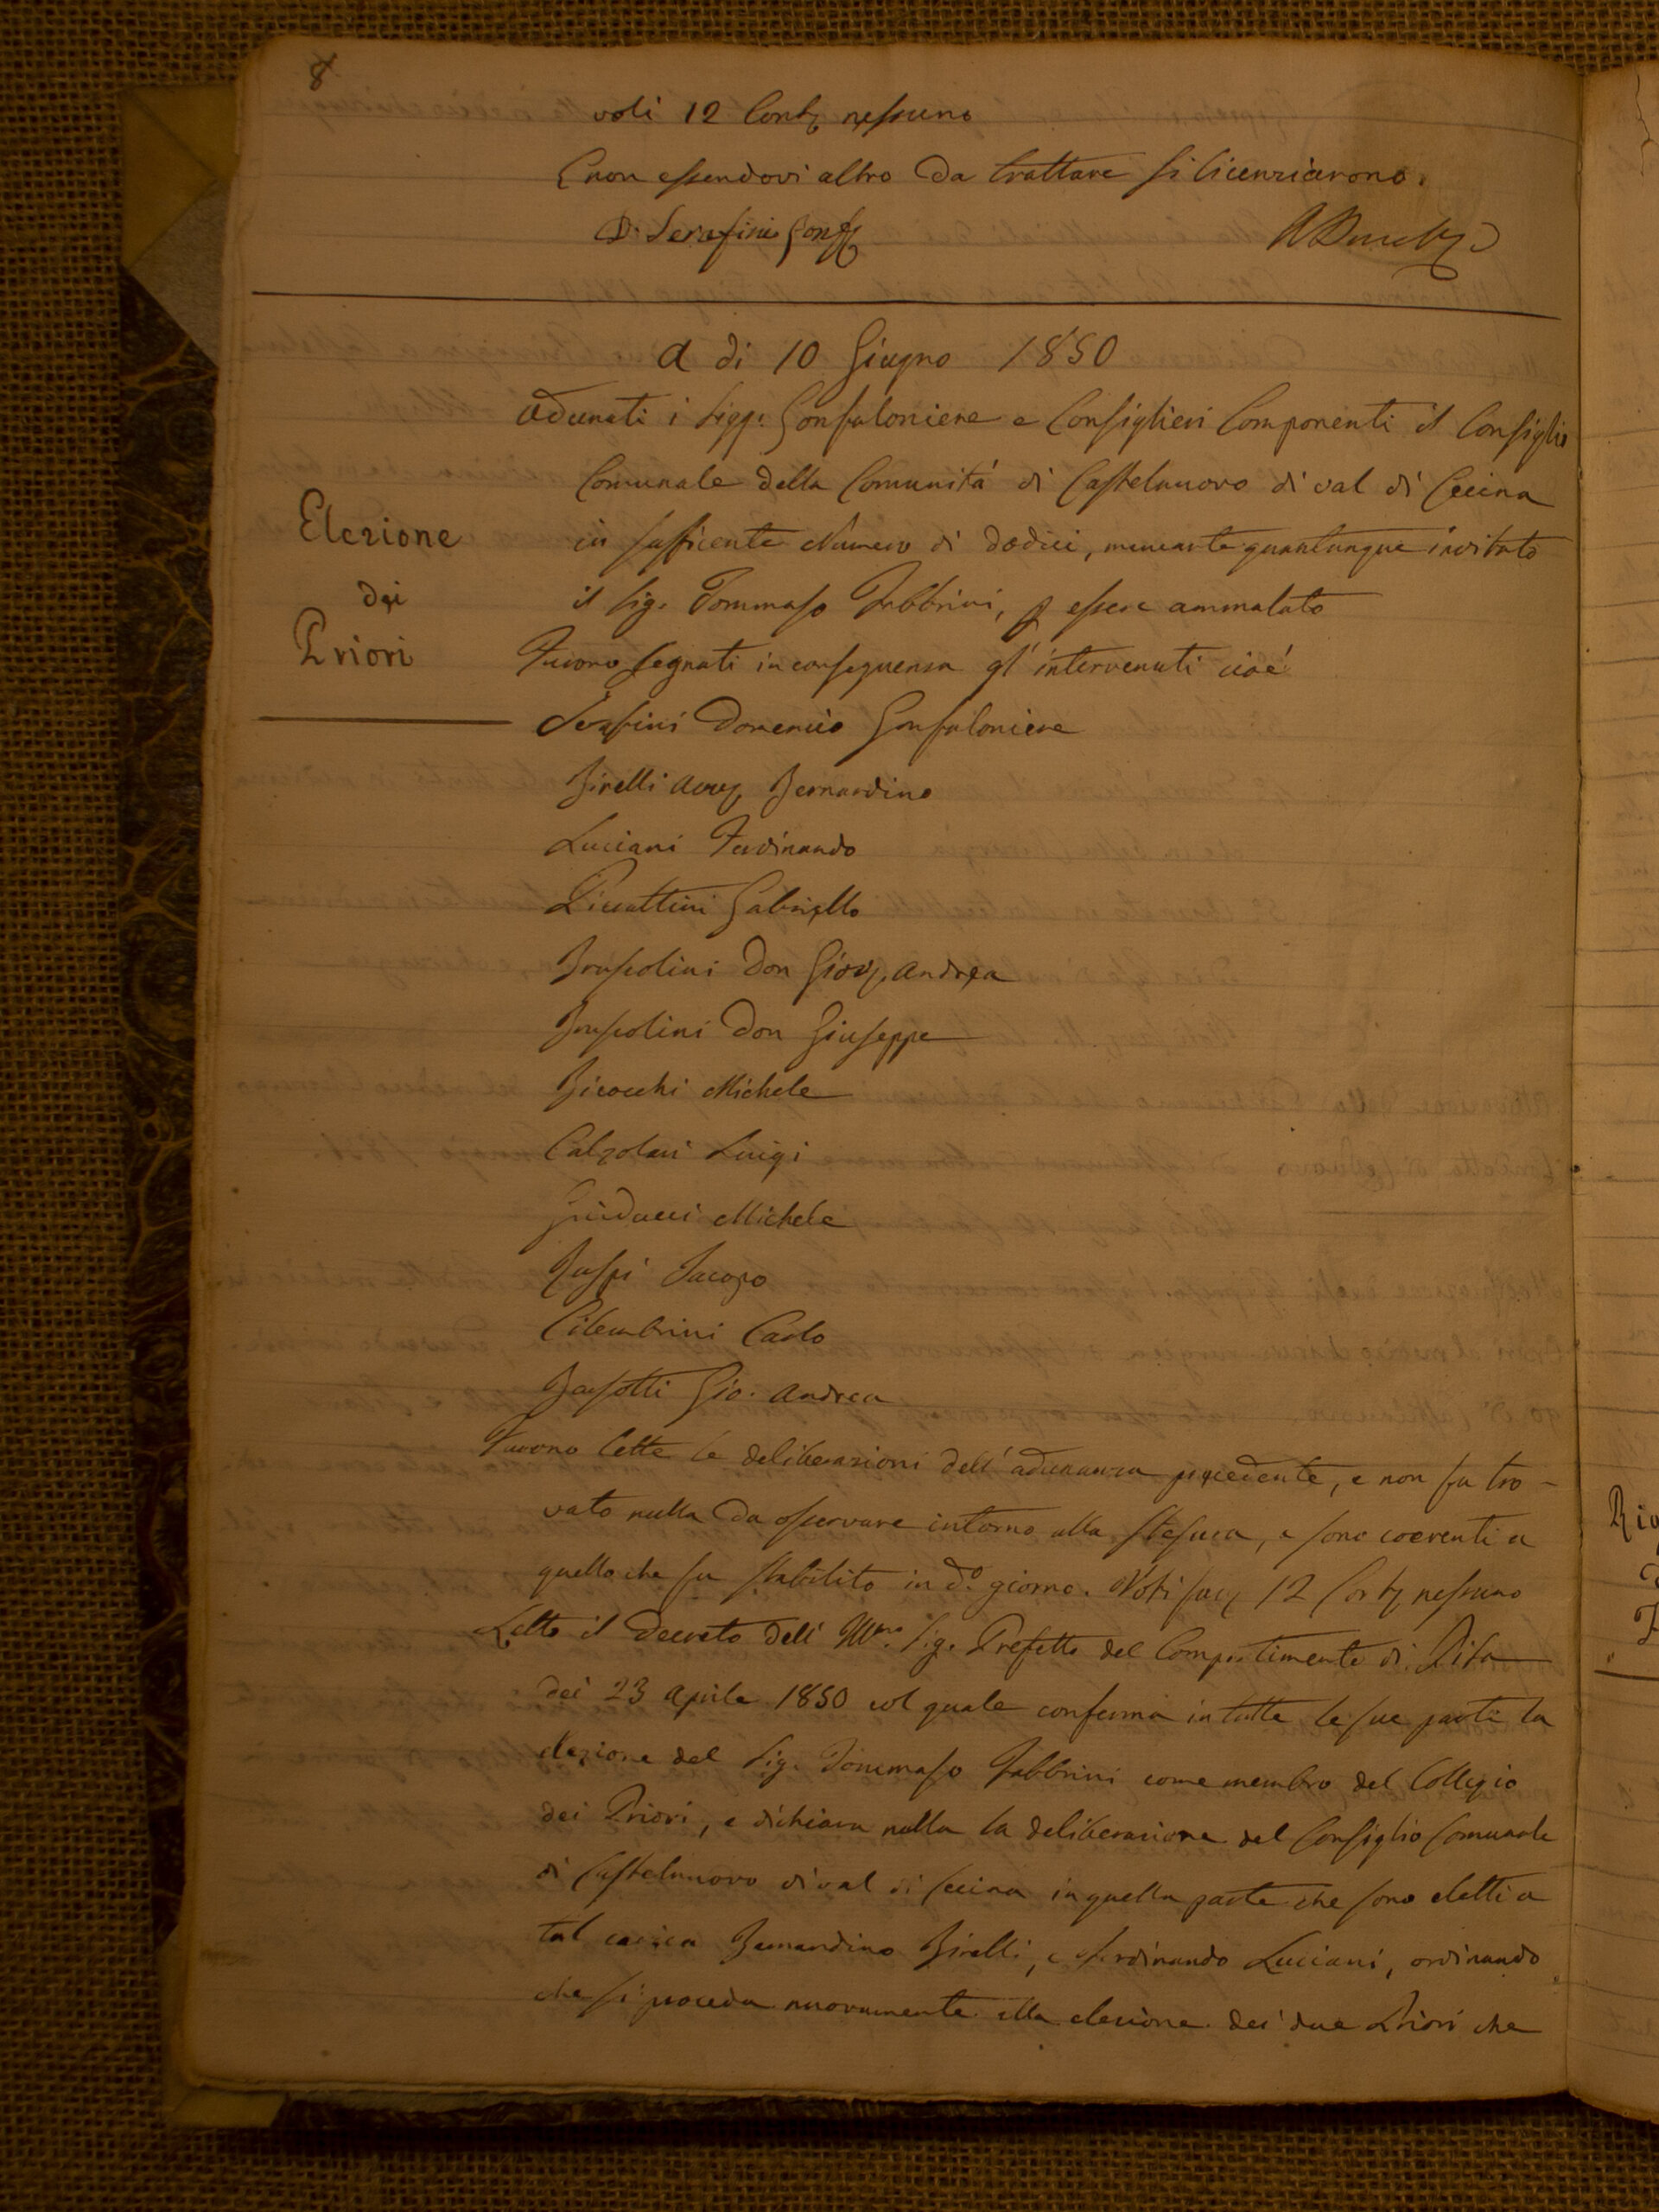 8
voli 12 Contr. nessuno
E non essendovi altro da trattare si licenziarono.
D. Serafini Gonf.
A di 10 Giugno 1850
Elezione
dei
Priori
Adunati i Sigg: Gonfaloniere e Consiglieri Componenti il Consiglio
Comunale della Comunità di Castelnuovo di val di Cecina
in sufficente Numero di dodici, mancante quantunque invitato
il Sig. Tommaso Fabbrini, p essere ammalato
Furono segnati in conseguenza gl'intervenuti cioè
Serafini Domenico Gonfaloniere
Birelli Avv. Bernardino
Luciani Ferdinando
Gabriello
Bruscolini Don Giov. Andrea
Bruscolini Don Giuseppe
Bicocchi Michele
Calzolari Luigi
Guiducci Michele
Ruspi Jacopo
Cilembrini Carlo
Basotti Gio. Andrea
Furono lette le deliberazioni dell'adunanza precedente, e non fu tro-
vato nulla da osservare intorno alla stesura, e sono coerenti a
quello che fu stabilito in d.o giorno. Voti fav. 12 Contr. nessuno
Letto il Decreto dell' Illmo. Sig. Prefetto del Compartimento di Pisa
dei 23 Aprile 1850 col quale conferma in tutte le sue parti la
elezione del Sig. Tommaso Fabbrini come membro del Collegio
dei Priori, e dichiara nulla la deliberazione del Consiglio Comunale
di Castelnuovo di val di Cecina in quella parte che sono eletti a
tal carica Bernardino Birelli, e Ferdinando Luciani, ordinando
che si proceda nuovamente alla elezione dei due Priori che